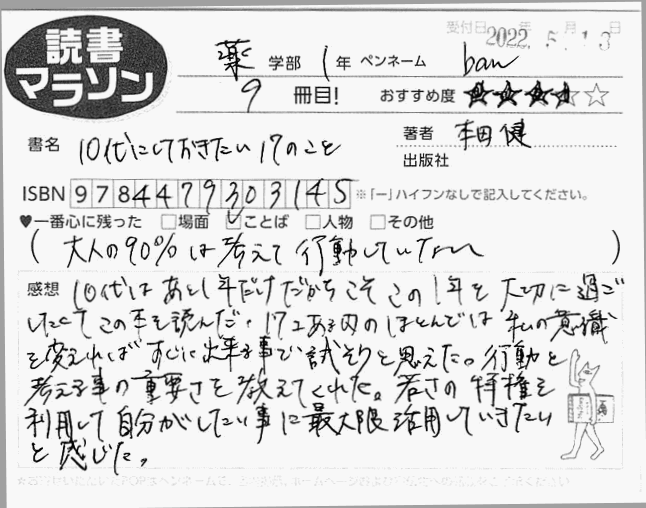 読書
マラソン
受付日 2022年 5月13日
薬 学部 1年 ペンネーム ban
9 冊目! おすすめ度 ★★★★☆
書名 10代にしておきたい17のこと
著者 本田健
出版社
ISBN 9784479303145 ※「-」ハイフンなしで記入してください。
♥一番心に残った □場面 ☑ことば □人物 □その他
(大人の90%は考えて行動していない)
感想 10代はあと1年だけだからこそこの1年を大切に過ご
したくてこの本を読んだ。17こある内のほとんどは私の意識
を変えればすぐに出来る事で試そうと思えた。行動と
考える事の重要さを教えてくれた。若さの特権を
利用して自分がしたい事に最大限活用していきたい
と感じた。